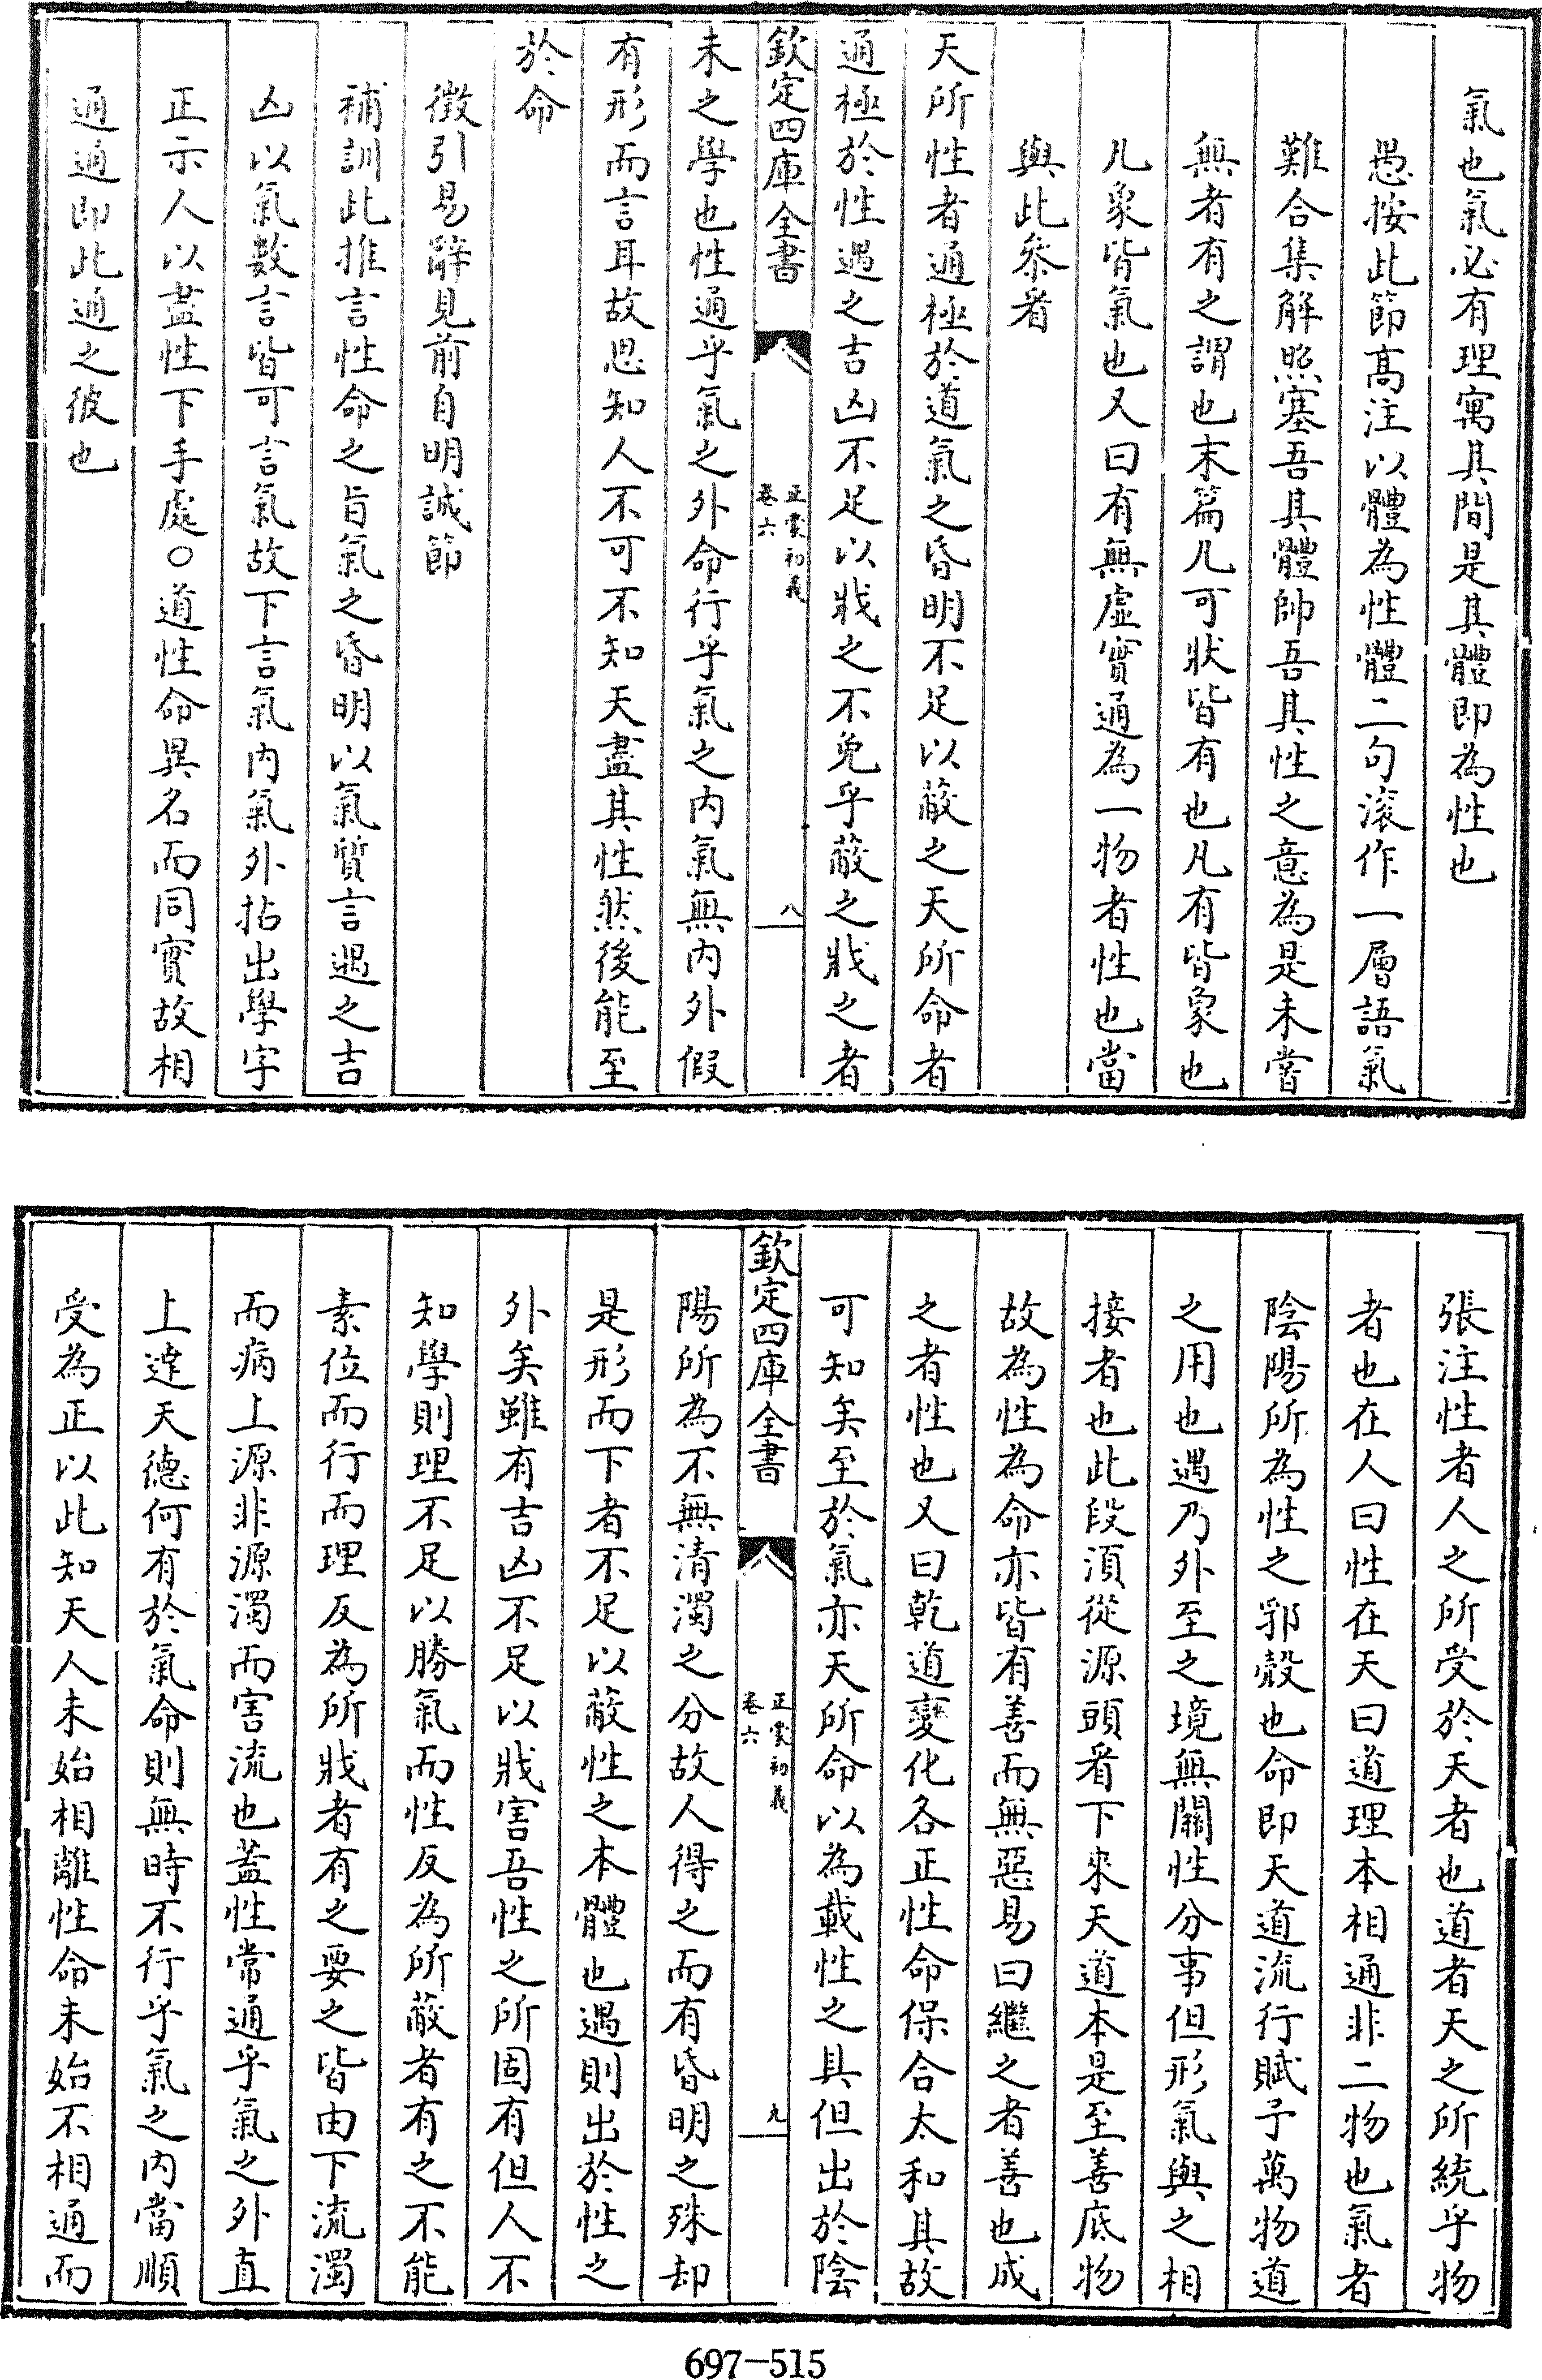 氣也氣必有理寓其間是其體即為性也
愚按此節髙注以體為性體二句滚作一層語氣
難合集解照塞吾其體帥吾其性之意為是未嘗
無者有之謂也末篇凡可狀皆有也凡有皆象也
凡象皆氣也又曰有無虛實通為一物者性也當
與此叅看
天所性者通極於道氣之昏明不足以蔽之天所命者
通極於性遇之吉凶不足以戕之不免乎蔽之戕之者
欽定四庫全書
正蒙初義
卷六
八
未之學也性通乎氣之外命行乎氣之内氣無内外假
有形而言耳故思知人不可不知天盡其性然後能至
於命
徵引易辭見前自明誠節
補訓此推言性命之旨氣之昏明以氣質言遇之吉
凶以氣數言皆可言氣故下言氣内氣外拈出學字
正示人以盡性下手處○道性命異名而同實故相
通通即此通之彼也
張注性者人之所受於天者也道者天之所統乎物
者也在人曰性在天曰道理本相通非二物也氣者
陰陽所為性之郛殻也命即天道流行賦予萬物道
之用也遇乃外至之境無關性分事但形氣與之相
接者也此段湏從源頭看下來天道本是至善底物
故為性為命亦皆有善而無惡易曰繼之者善也成
之者性也又曰乾道變化各正性命保合太和其故
可知矣至於氣亦天所命以為載性之具但出於陰
欽定四庫全書
正蒙初義
卷六
九
陽所為不無清濁之分故人得之而有昏明之殊却
是形而下者不足以蔽性之本體也遇則出於性之
外矣雖有吉凶不足以戕害吾性之所固有但人不
知學則理不足以勝氣而性反為所蔽者有之不能
素位而行而理反為所戕者有之要之皆由下流濁
而病上源非源濁而害流也葢性常通乎氣之外直
上達天德何有於氣命則無時不行乎氣之内當順
受為正以此知天人未始相離性命未始不相通而
697-515